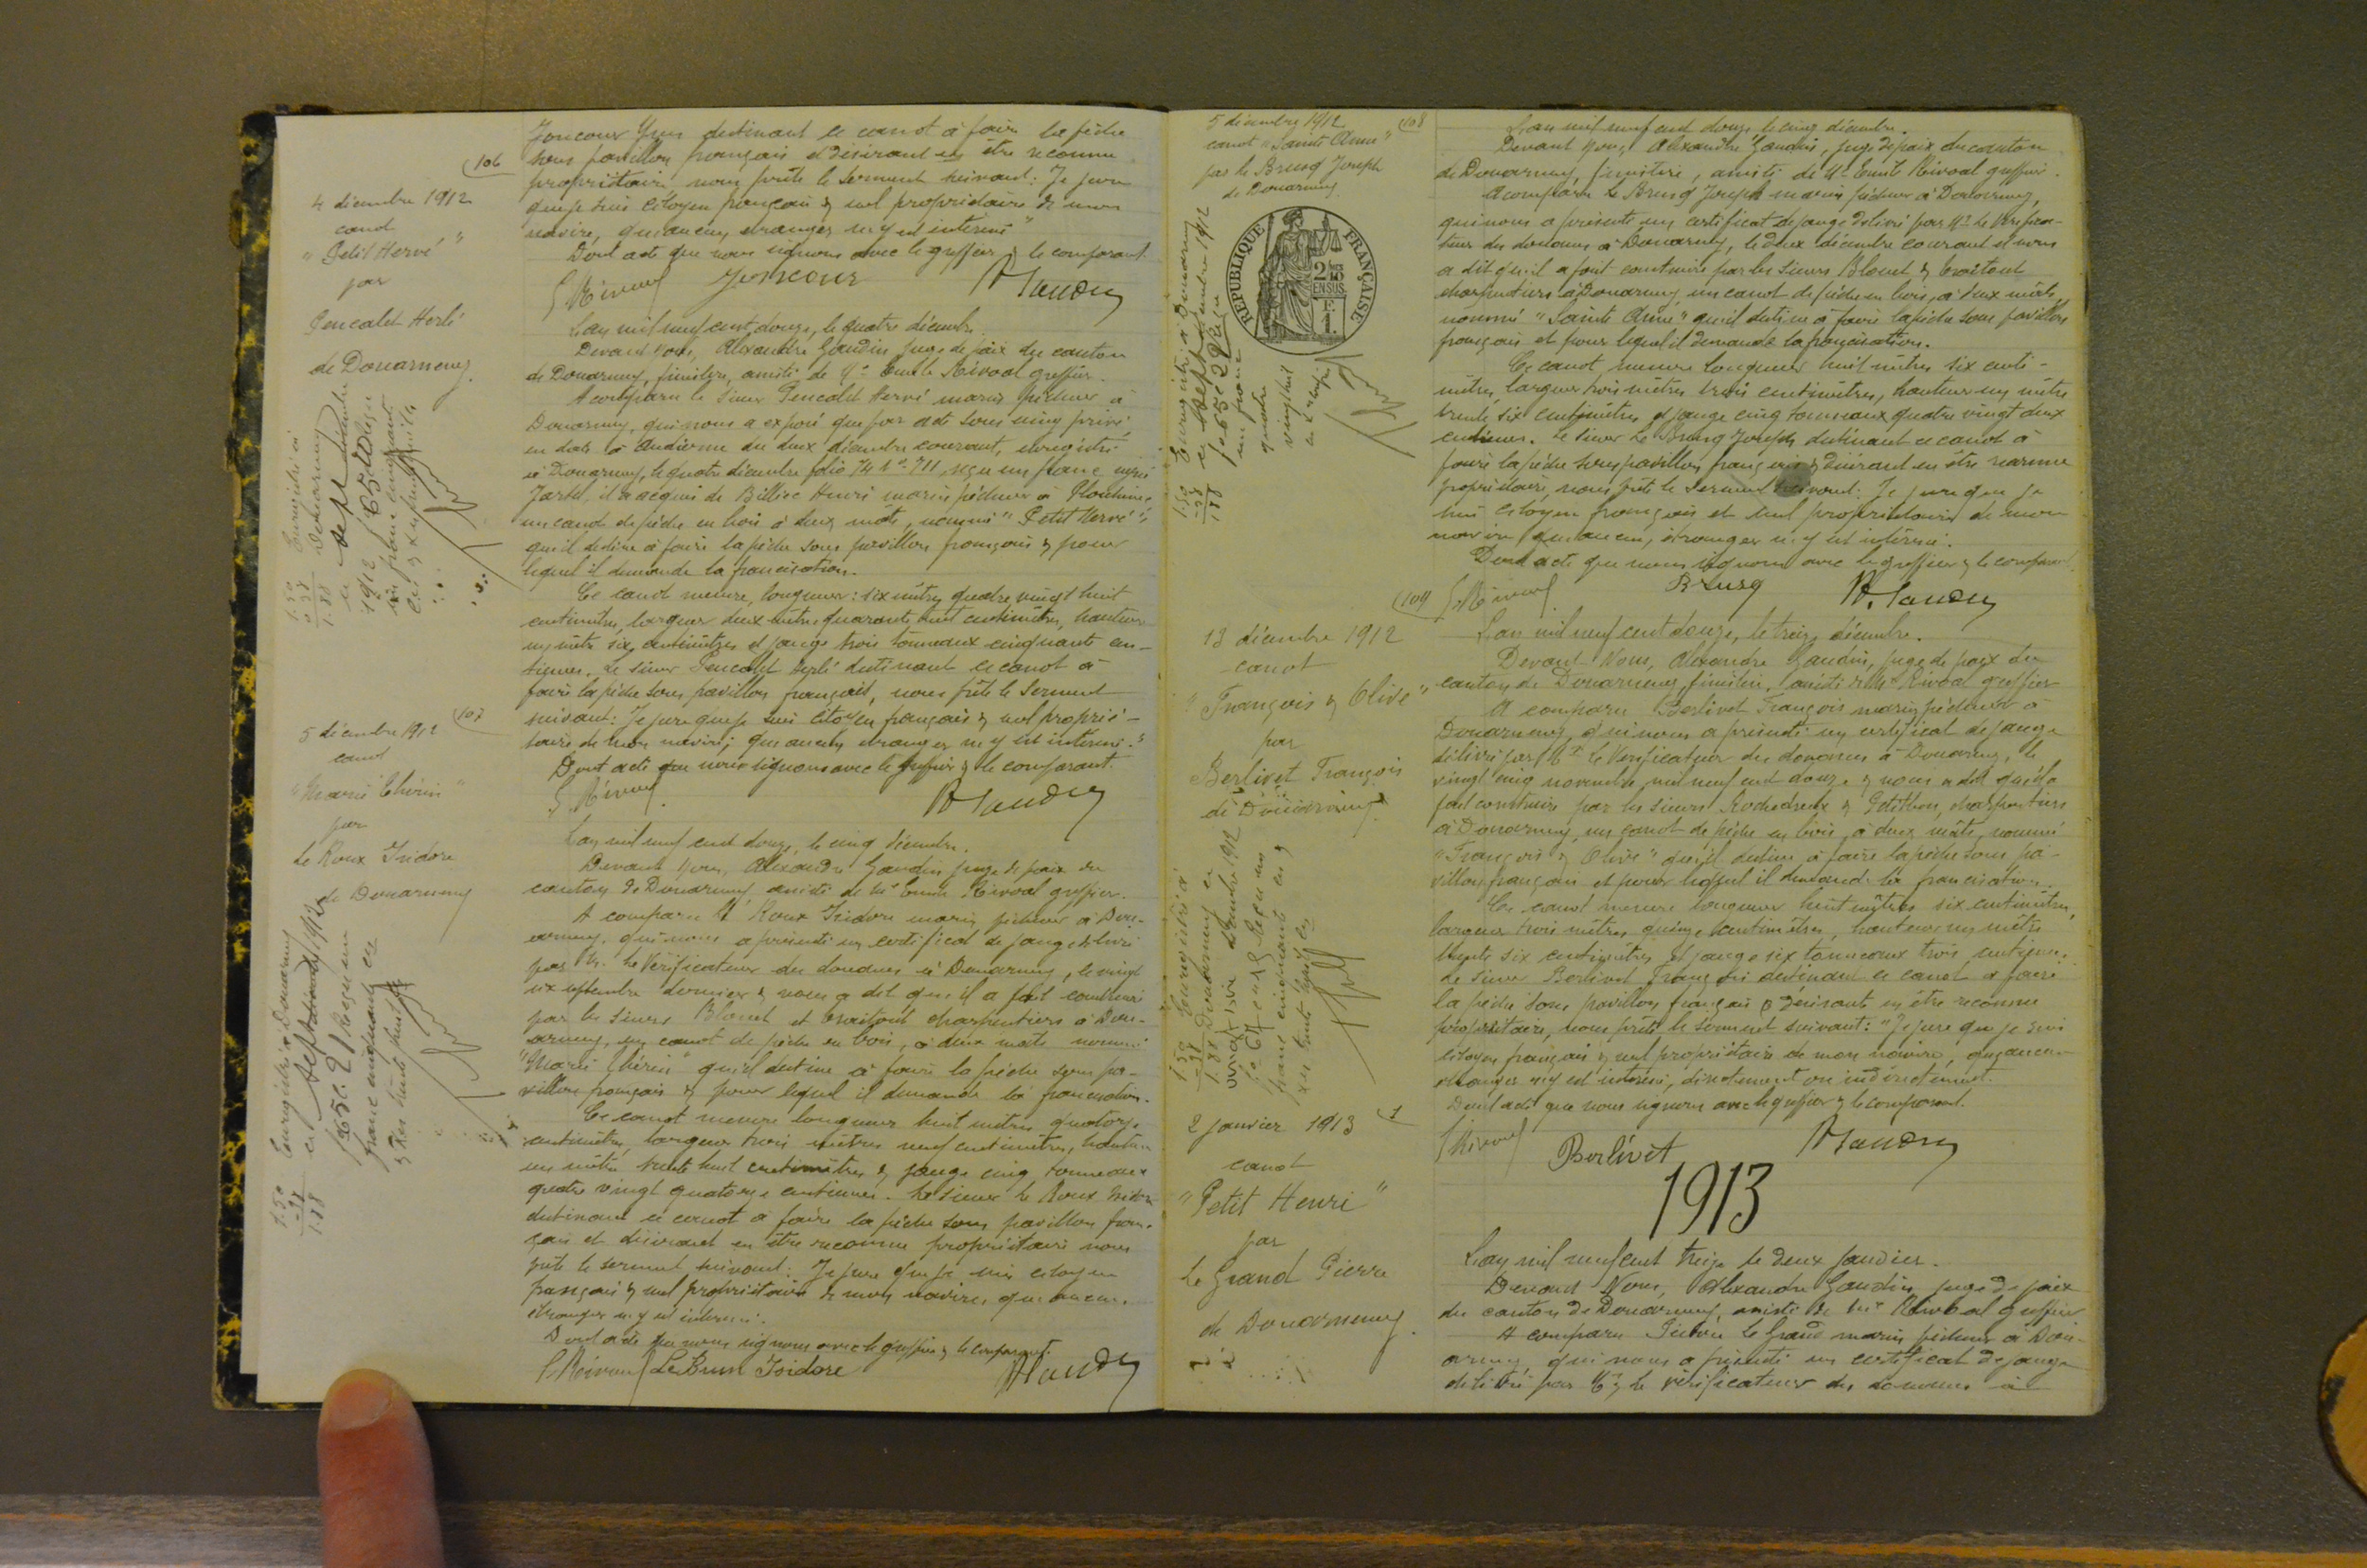 Joncour Yves destinant ce canot à faire la pêche
sous pavillon français et désirant en être reconnu
propriétaire nous prête le serment suivant: Je jure
que je suis citoyen français & seul propriétaire de mon
navire, qu'aucun étranger n'y est intéressé"
Dont acte que nous signons avec le greffier & le comparant.
Joncour
106
4 décembre 1912
canot
"Petit Hervé"
par
Pencalet Herlé
de Douarnenez
Enregistré à
Douarnenez
le sept décembre
1912
un franc cinquante
1.50
1.88
L'an mil neuf cent douze, le quatre décembre.
Devant nous, Alexandre Gaudin juge de paix du canton
de Douarnenez, finistère, assisté de Me Emile Rivoal greffier.
A comparu le sieur Pencalet Hervé marin pêcheur à
Douarnenez, qui nous a exposé que par acte sous seing privé
en date à Audierne du deux décembre courant, enregistré
à Douarnenez, le quatre décembre folio 74 No 711 reçu un franc signé
il a acquis de Billiec Henri marin pêcheur à
un canot de pêche en bois à deux mâts, nommé "Petit Hervé",
qu'il destine à faire la pêche sous pavillon français & pour
lequel il demande la francisation.
Ce canot mesure, longueur: six mètres quatre vingt huit
centimètres, largeur deux mètres quarante huit centimètres, hauteur
un mètre six centimètres et jauge trois tonneaux cinquante cen-
tièmes. Le sieur Pencalet Herlé destinant ce canot à
faire la pêche sous pavillon français, nous prête le serment
suivant: Je jure que je suis citoyen français & seul proprié-
taire de mon navire; qu'aucun étranger n'y est intéressé."
Dont acte que nous signons avec le greffier & le comparant.
107
5 décembre 1912
canot
"Marie Thérèse"
par
Le Roux Isidore
de Douarnenez
Enregistré à Douarnenez
le sept décembre 1912
fo 65 c. 21 Reçu un
franc cinquante ces
& Xes trente huit ces
1.50
-38
1.88
L'an mil neuf cent douze, le cinq décembre.
Devant Nous, Alexandre Gaudin juge de paix du
canton de Douarnenez assisté de Me Emile Rivoal greffier.
A comparu Le Roux Isidore marin pêcheur à Dou-
arnenez, qui nous a présenté un certificat de jauge délivré
par Mr. le Vérificateur des douanes à Douarnenez, le vingt
six septembre dernier & nous a dit qu'il a fait construire
par les sieurs Blouet et charpentiers à Dou-
arnenez, un canot de pêche en bois, à deux mâts nommé
"Marie Thérèse" qu'il destine à faire la pêche sous pa-
villon français & pour lequel il demande la francisation.
Ce canot mesure longueur huit mètres quatorze
centimètres, largeur trois mètres neuf centimètres, hauteur
un mètre trente huit centimètres & jauge cinq tonneaux
quatre vingt quatorze centièmes. Le sieur Le Roux Isidore
destinant ce canot à faire la pêche sous pavillon fran-
çais et désirant en être reconnu propriétaire nous
prête le serment suivant: Je jure que je suis citoyen
français & seul propriétaire de mon navire, qu'aucun
étranger n'y est intéressé.
Dont acte que nous signons avec le greffier & le comparant.
Le Brun Isidore
5 décembre 1912
108
canot "Sainte Anne"
par Le Brusq Joseph
de Douarnenez
REPUBLIQUE FRANÇAISE
2/10 EN SUS
1 F.
Enregistré à Douarnenez
le sept décembre 1912
fo 65 c 22 Reçu
un franc
1.50
-38
1.88
L'an mil neuf cent douze le cinq décembre.
Devant Nous, Alexandre Gaudin, juge de paix du canton
de Douarnenez, finistère, assisté de Me Emile Rivoal greffier.
A comparu Le Brusq Joseph marin pêcheur à Douarnenez,
qui nous a présenté un certificat de jauge délivré par Mr le Vérifica-
teur des douanes à Douarnenez, le deux décembre courant et nous
a dit qu'il a fait construire par les sieurs Blouet &
charpentiers à Douarnenez, un canot de pêche en bois, à deux mâts,
nommé "Sainte Anne" qu'il destine à faire la pêche sous pavillon
français et pour lequel il demande la francisation.
Ce canot mesure longueur huit mètres six centi-
mètres, largeur trois mètres trois centimètres, hauteur un mètre
trente six centimètres et jauge cinq tonneaux quatre vingt deux
centièmes. Le sieur Le Brusq Joseph destinant ce canot à
faire la pêche sous pavillon français & désirant en être reconnu
propriétaire, nous prête le serment suivant: Je jure que je
suis citoyen français et seul propriétaire de mon
navire, qu'aucun étranger n'y est intéressé.
Dont acte que nous signons avec le greffier & le comparant.
Brusq
109
13 décembre 1912
canot
"François & Olive"
par
Berlivet François
de Douarnenez
Enregistré à
Douarnenez le
décembre 1912
fo 67 Reçu un
franc cinquante ces &
Xes trente huit ces
1.50
-38
1.88
L'an mil neuf cent douze, le treize décembre.
Devant Nous, Alexandre Gaudin, juge de paix du
canton de Douarnenez, finistère, assisté de Me Rivoal greffier
A comparu Berlivet François marin pêcheur à
Douarnenez, qui nous a présenté un certificat de jauge
délivré par Mr le Vérificateur des douanes à Douarnenez, le
vingt cinq novembre mil neuf cent douze & nous a dit qu'il a
fait construire par les sieurs & charpentiers
à Douarnenez, un canot de pêche en bois, à deux mâts, nommé
"François & Olive" qu'il destine à faire la pêche sous pa-
villon français et pour lequel il demande la francisation.
Ce canot mesure longueur huit mètres six centimètres,
largeur trois mètres quinze centimètres, hauteur un mètre
trente six centimètres et jauge six tonneaux trois centièmes.
Le sieur Berlivet François destinant ce canot à faire
la pêche sous pavillon français & désirant en être reconnu
propriétaire, nous prête le serment suivant: "Je jure que je suis
citoyen français & seul propriétaire de mon navire, qu'aucun
étranger n'y est intéressé, directement ou indirectement.
Dont acte que nous signons avec le greffier & le comparant.
Berlivet
1913
2 janvier 1913
1
canot
"Petit Henri"
par
Le Grand Pierre
de Douarnenez.
L'an mil neuf cent treize le deux janvier.
Devant Nous, Alexandre Gaudin, juge de paix
du canton de Douarnenez, assisté de Me Rivoal greffier
A comparu Pierre Le Grand marin pêcheur à Dou-
arnenez, qui nous a présenté un certificat de jauge
délivré par Mr le vérificateur des douanes à